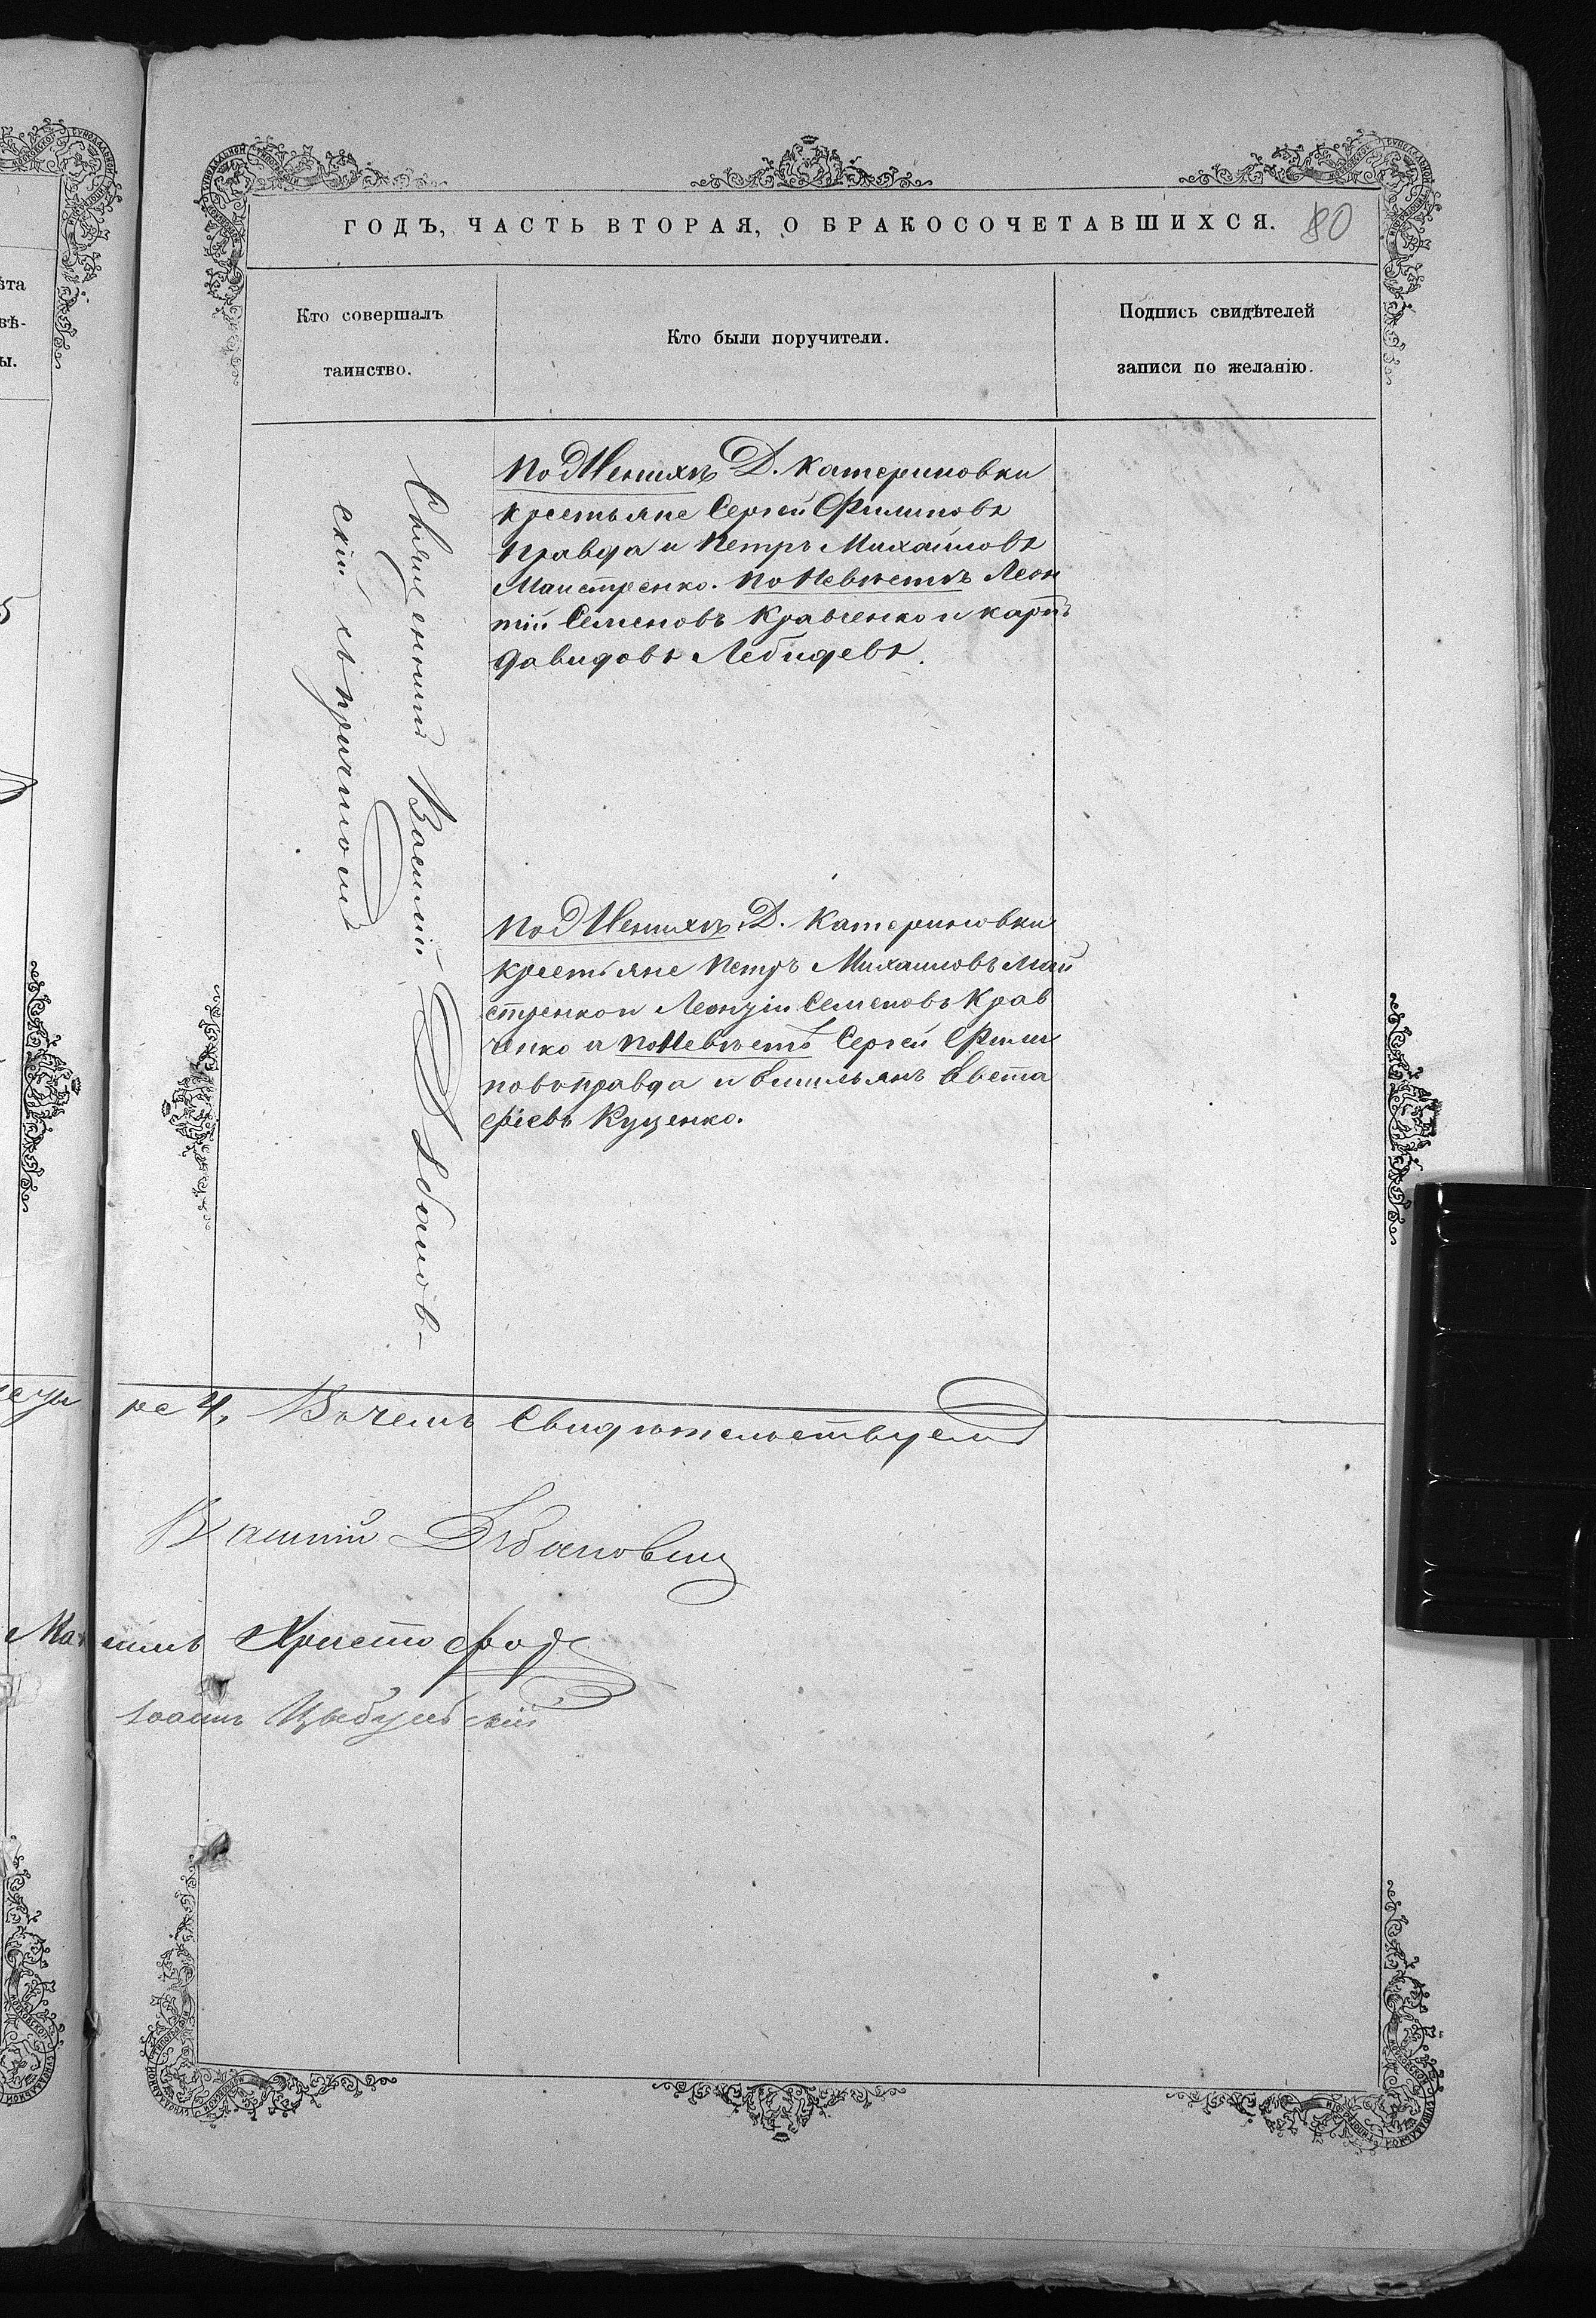 ГОДЪ, ЧАСТЬ ВТОРАЯ, О БРАКОСОЧЕТАВШИХСЯ. 80
Кто совершалъ
таинство.
Кто были поручители.
Подпись свидѣтелей
записи по желанію.
Священникъ Василій Дзбанов-
скій съ причтомъ
По Женихѣ Д. Катериновки
крестьяне Сергѣй Филиповъ
Правда и Петръ Михаиловъ
Маистренко. По Невѣстѣ Леон
тій Семеновъ Кравченко и Карпъ
Давидовъ Лебидевъ.
По Женихѣ Д. Катериновки
крестьяне Петръ Михаиловъ Маи
стренко и Леонтій Семеновъ Крав
ченко и по Невѣстѣ Сергѣй Фили
повъ Правда и Емильянъ Евста
фіевъ Куценко.
ре 4, Въ чемъ Свидѣтельствуемъ
Василій Дзбановскій
Максимъ Христофор
Іоаннъ Цыбульскій